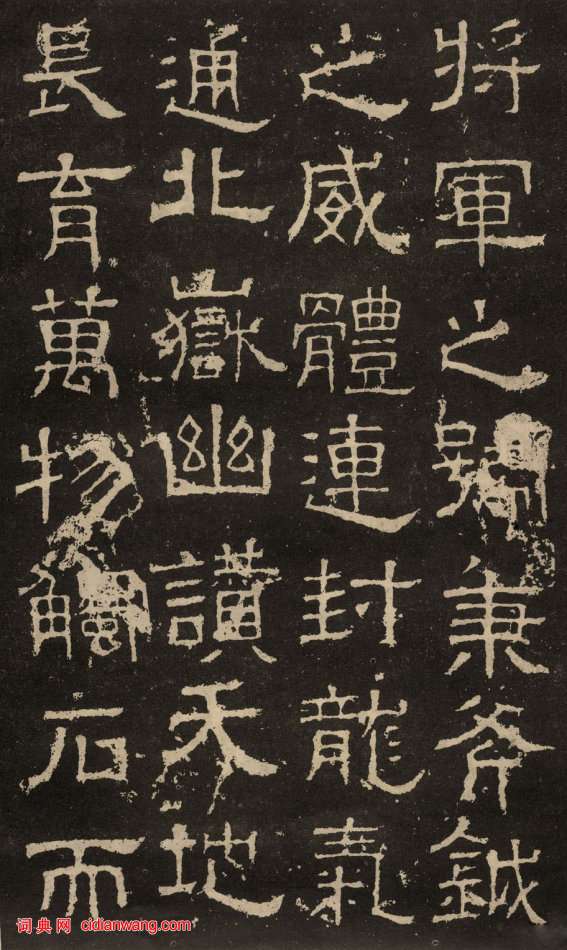 將軍之號秉斧鉞
之威體連封龍氣
通北嶽幽讚天地
長育萬物觸石而
词典网 cidianwang.com